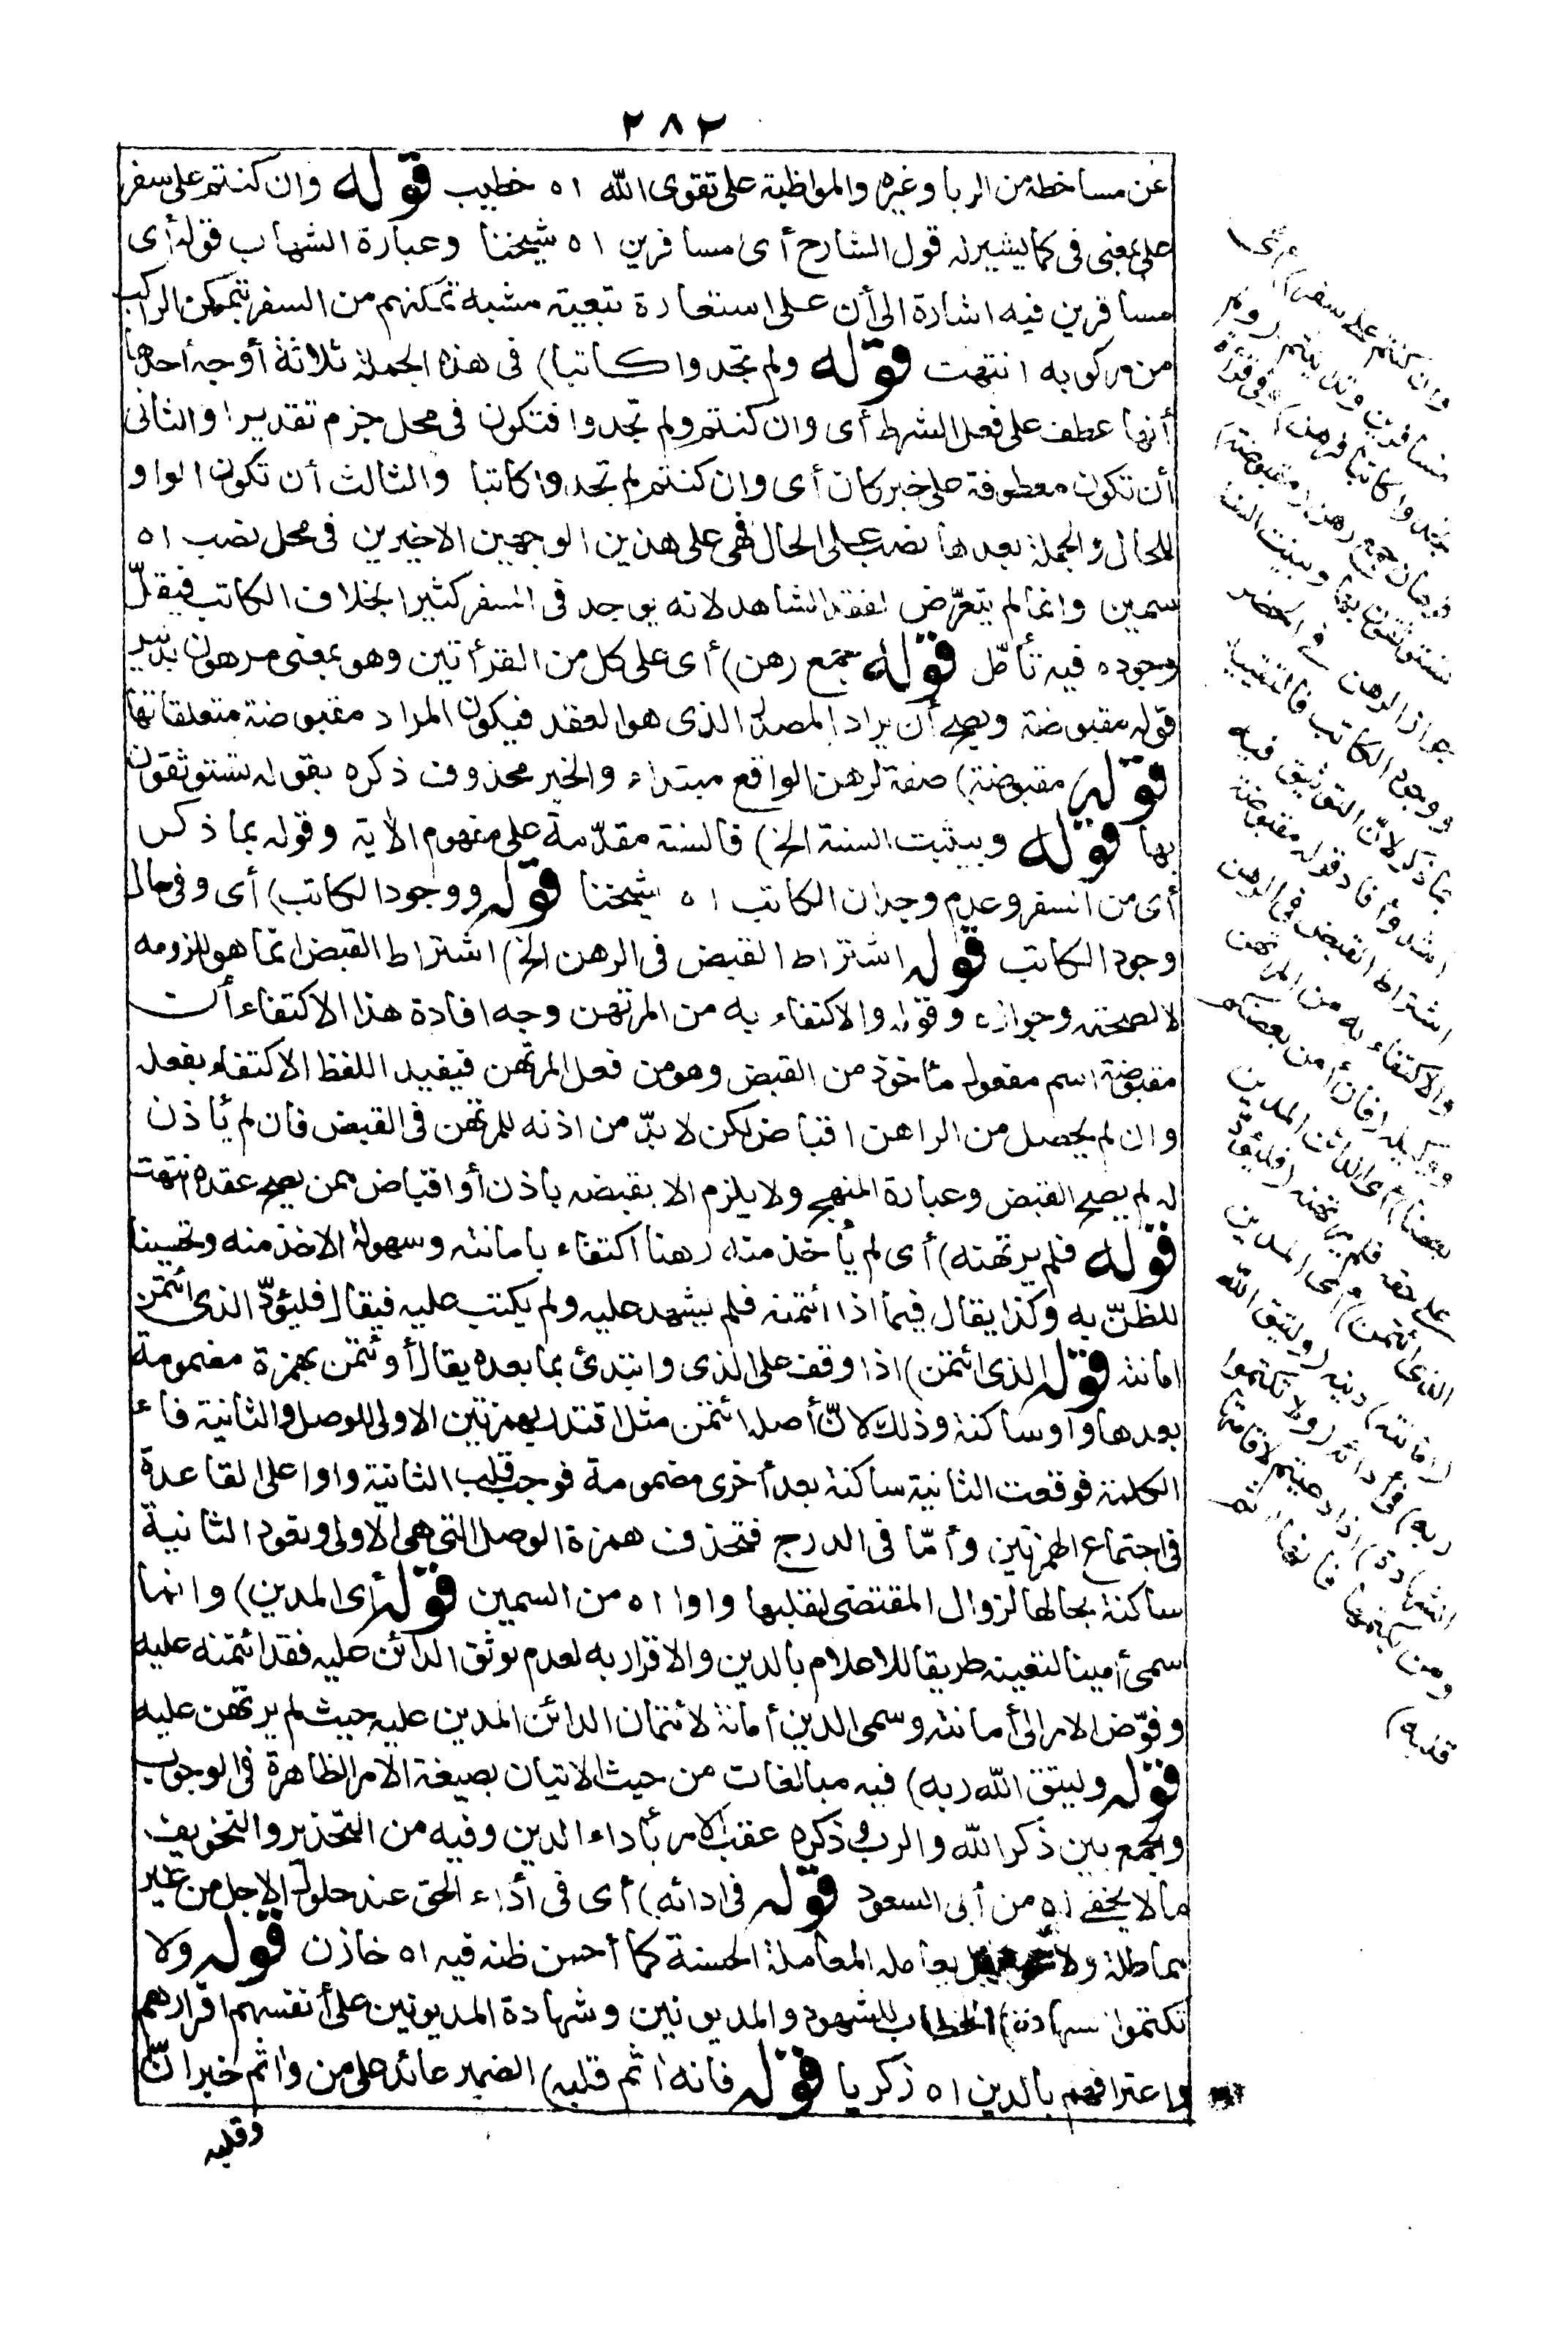 ٢٨٢
عن مساخطه من الربا وغيره والمواظبة على تقوى الله اه خطيب قوله وان كنتم على سفر
على بمعنى فى كما يشير له قول الشارح أى مسافرين اه شيخنا وعبارة الشهاب قوله أى
مسافرين فيه اشارة الى أن على استعارة تبعية مشبه تمكنهم من السفر بتمكن الراكب
من مركوبه انتهت قوله ولم تجدوا كاتبا) فى هذه الجملة ثلاثة أوجه أحدها
أنها عطف على فعل الشرط أى وان كنتم ولم تجدوا فتكون فى محل جزم تقديرا والثانى
أن تكون معطوفة على خبر كان أى وان كنتم لم تجدوا كاتبا والثالث أن تكون الواو
للحال والجملة بعدها نصب على الحال فهى على هذين الوجهين الاخيرين فى محل نصب اه
سمين وانما لم يتعرّض لفقد الشاهد لانه يوجد فى السفر كثيرا بخلاف الكاتب فيقلّ
وجوده فيه تأمّل قوله جمع رهن) أى على كل من القرأتين وهو بمعنى مرهون بدليل
قوله مقبوضة ويصح أن يراد المصدر الذى هو العقد فيكون المراد مقبوضة متعلقاتها
قوله مقبوضة) صفة لرهن الواقع مبتداء والخبر محذوف ذكره بقوله تستوثقون
بها قوله وبينت السنة الخ) فالسنة مقدّمة على مفهوم الأية وقوله بما ذكر
أى من السفر وعدم وجدان الكاتب اه شيخنا قوله ووجود الكاتب) أى وفى حال
وجود الكاتب قوله اشتراط القبض فى الرهن الخ) اشتراط القبض انما هو للزومه
لا لصحته وجوازه وقوله والاكتفاء به من المرتهن وجه افادة هذا الاكتفاء أن
مقبوضة اسم مفعول مأخوذ من القبض وهو من فعل المرتهن فيفيد اللفظ الاكتفاء بفعله
وان لم يحصل من الراهن اقباض لكن لا بدّ من اذنه للمرتهن فى القبض فان لم يأذن
له لم يصح القبض وعبارة المنهج ولا يلزم الا بقبضه باذن أو اقباض ممن يصح عقده انتهت
قوله فلم يرتهنه) أى لم يأخذ منه رهنا اكتفاء بامانته وسهولة الاخذ منه وتحسينا
للظنّ به وكذا يقال فيما اذا ائتمنه فلم يشهد عليه ولم يكتب عليه فيقال فليؤدّ الذى ائتمن
امانته قوله الذى ائتمن) اذا وقف على الذى وابتدئ بما بعده يقال أوتمن بهمزة مضمومة
بعدها واو ساكنة وذلك لانّ أصله ائتمن مثل اقتدر بهمزتين الاولى للوصل والثانية فاء
الكلمة فوقعت الثانية ساكنة بعد أخرى مضمومة فوجب قلب الثانية واوا على القاعدة
فى اجتماع الهمزتين وأمّا فى الدرج فتحذف همزة الوصل التى هى الاولى وتعود الثانية
ساكنة بحالها لزوال المقتضى لقلبها واوا اه من السمين قوله أى المدين) وانما
سمى أمينا لتعينه طريقا للاعلام بالدين والاقرار به لعدم توثق الدائن عليه فقد ائتمنه عليه
وفوّض الامر الى أمانته وسمى الدين أمانة لائتمان الدائن المدين عليه حيث لم يرتهن عليه
قوله وليتق الله ربه) فيه مبالغات من حيث الاتيان بصيغة الامر الظاهرة فى الوجوب
والجمع بين ذكر الله والرب وذكره عقب الامر بأداء الدين وفيه من التحذير والتخويف
ما لا يخفى اه من أبى السعود قوله فى ادائه) أى فى أداء الحق عند حلول الاجل من غير
مماطلة ولا يعامله المعاملة الحسنة كما أحسن ظنه فيه اه خازن قوله ولا
تكتموا الشهادة) الخطاب للشهود والمديونين وشهادة المديونين على أنفسهم اقرارهم
واعترافهم بالدين اه زكريا قوله فانه اثم قلبه) الضمير عائد على من واثم خبر انّ
وقلبه
وان كنتم على سفر) أى
مسافرين وتداينتم (ولم
تجدوا كاتبا فرهن) وفى قراءة
فرهان جمع رهن (مقبوضة)
تستوثقون بها وبينت السنة
جواز الرهن فى الحضر
ووجود الكاتب فالتقييد
بما ذكر لانّ التوثيق فيه
اشد وأفاد قوله مقبوضة
اشتراط القبض فى الرهن
والاكتفاء به من المرتهن
ووكيله (فان أمن بعضكم
بعضا) أى الدائن المدين
على حقه فلم يرتهنه (فليؤدّ
الذى ائتمن) أى المدين
(امانته) دينه (وليتق الله
ربه) فى أدائه (ولا تكتموا
الشهادة) اذا دعيتم لاقامتها
ومن يكتمها فانه اثم
قلبه)